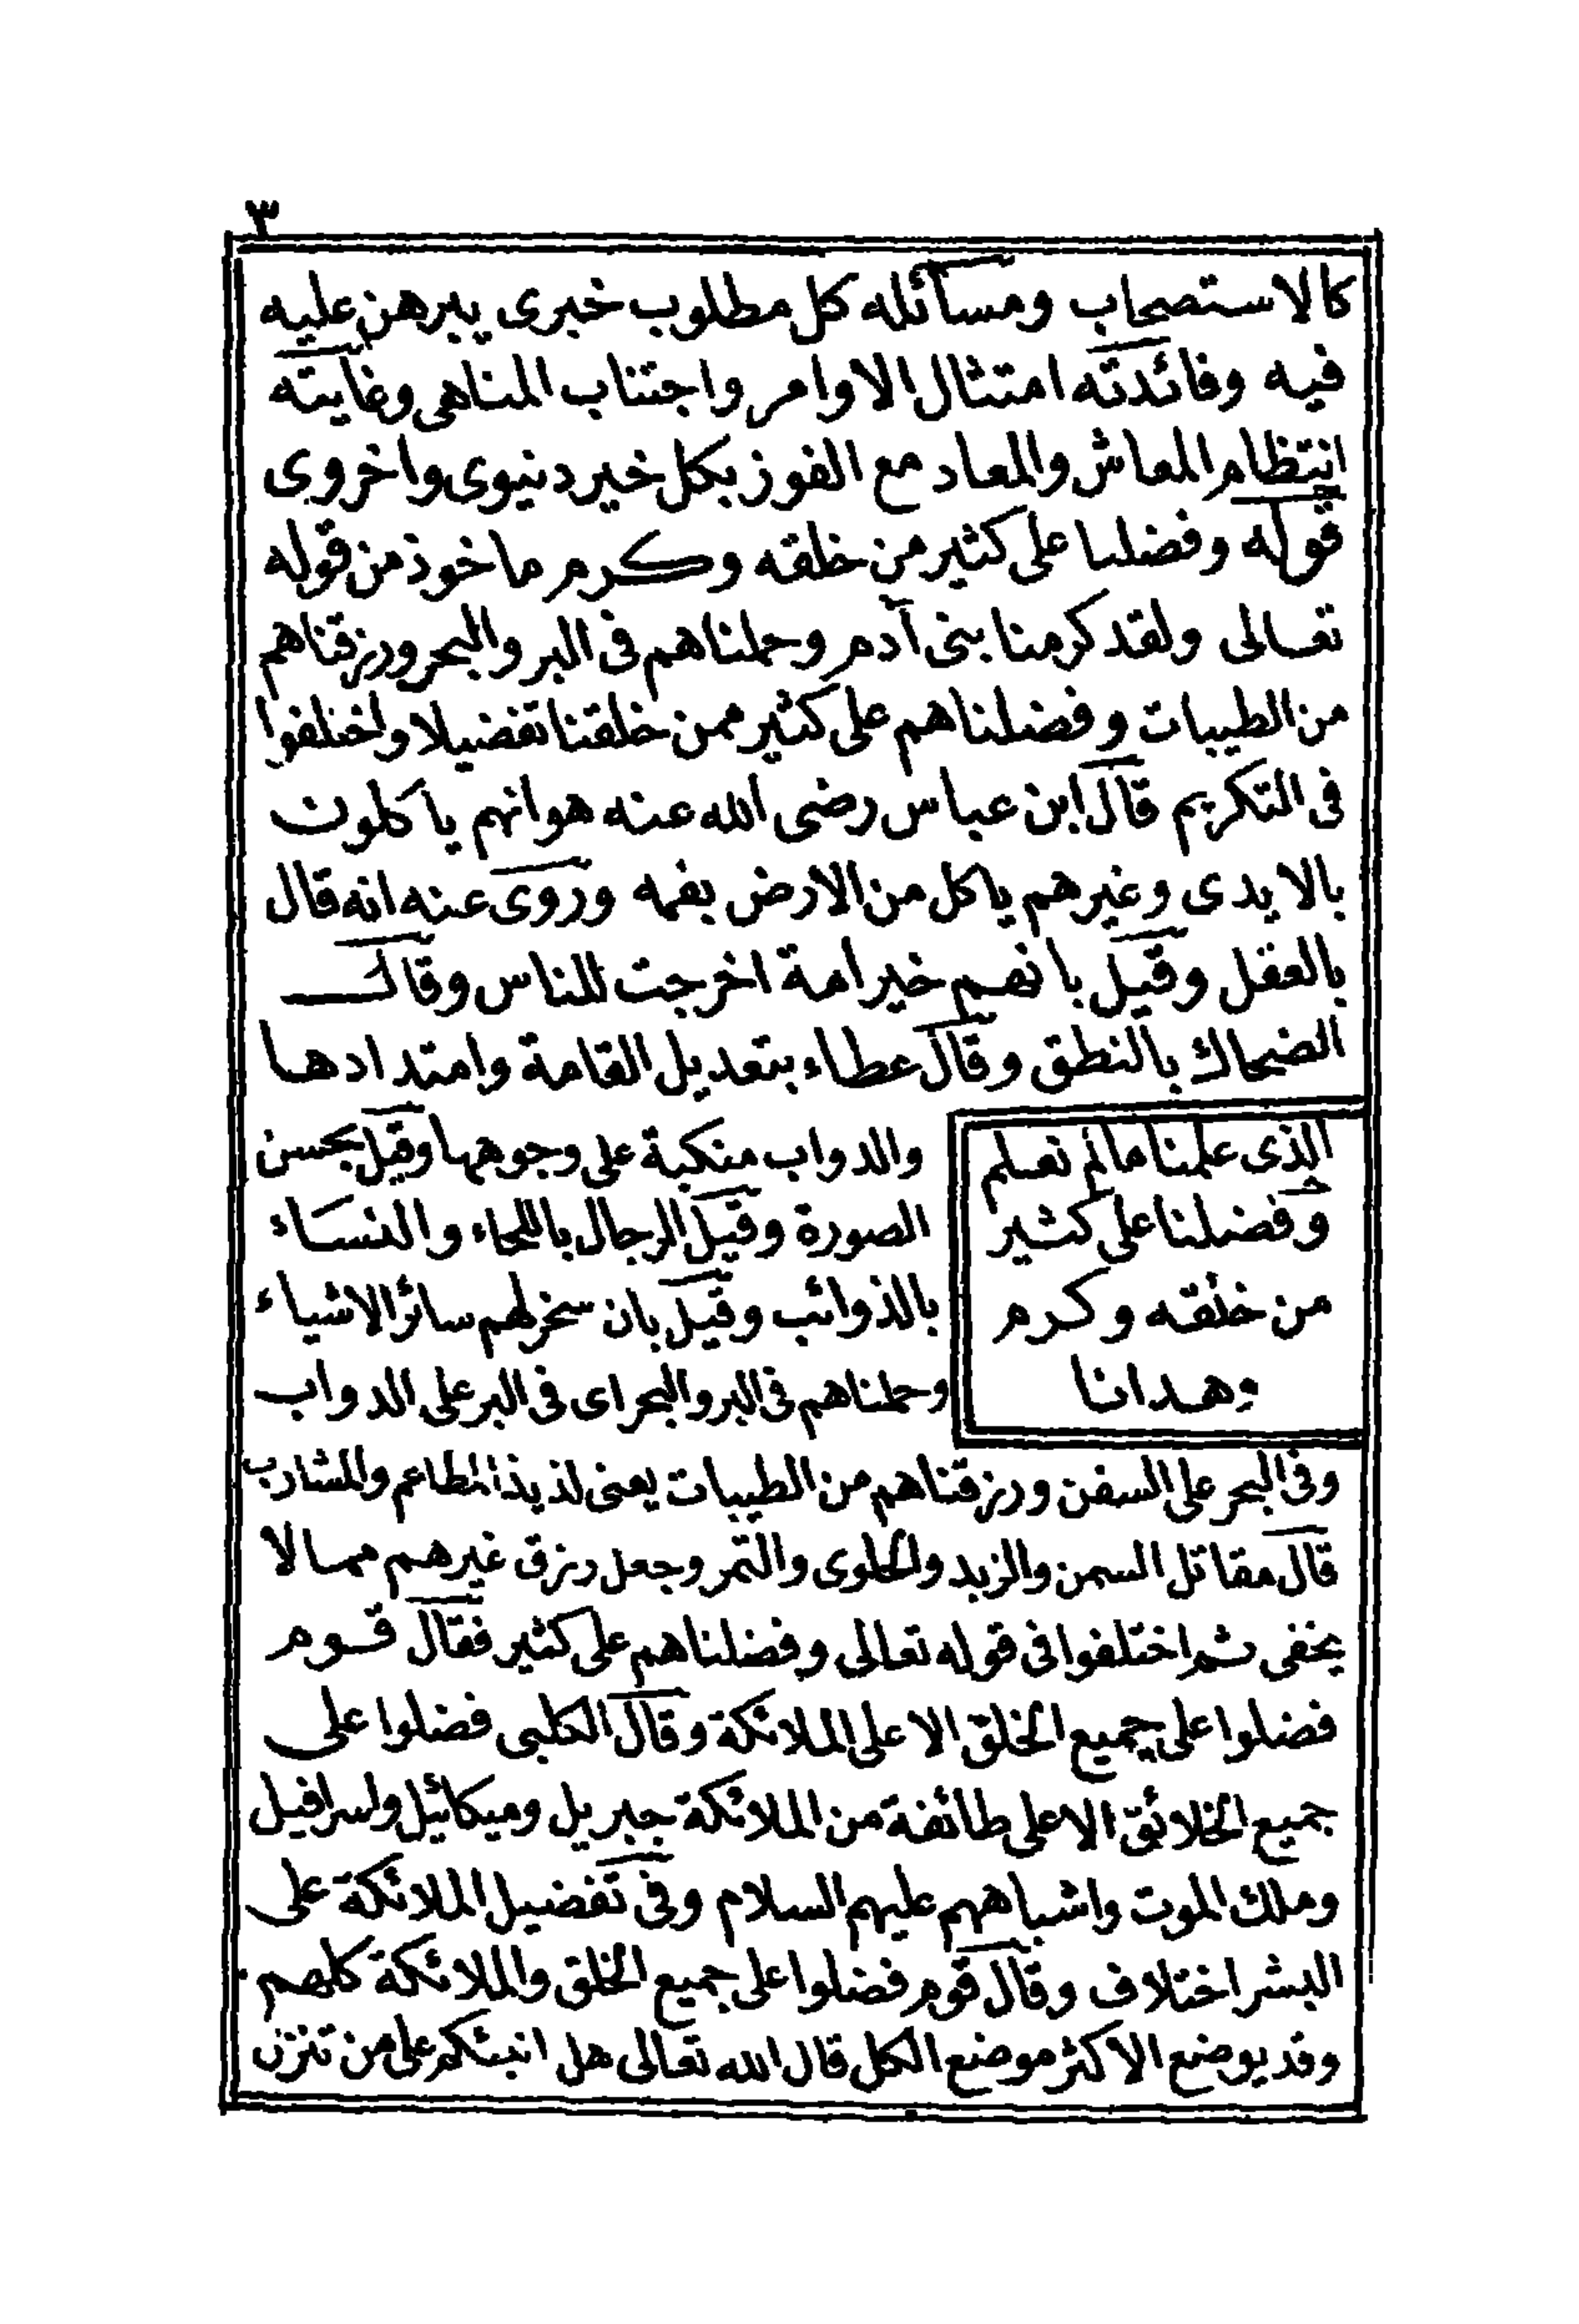 ٣
كالاستصحاب ومسائله كل مطلوب خبرى يبرهن عليه
فيه وفائدته امتثال الاوامر واجتناب المناهى وغايته
انتظام المعاش والمعاد مع الفوز بكل خير دنيوى واخروى
قوله وفضلنا على كثير من خلقه وكرم ماخوذ من قوله
تعالى ولقد كرمنا بنى آدم وحملناهم فى البر والبحر ورزقناهم
من الطيبات وفضلناهم على كثير ممن خلقنا تفضيلا واختلفوا
فى التكريم قال ابن عباس رضى الله عنه هو انهم ياكلون
بالايدى وغيرهم ياكل من الارض بفمه وروى عنه انه قال
بالعقل وقيل بانهم خير امة اخرجت للناس وقال
الضحاك بالنطق وقال عطاء بتعديل القامة وامتدادها
والدواب منكبة على وجوهها وقيل بحسن
الصورة وقيل الرجال باللحاء والنساء
بالذوائب وقيل بان سخر لهم سائر الاشياء
وحملناهم فى البر والبحر اى فى البر على الدواب
الذى علمنا مالم نعلم
وفضلنا على كثير
من خلقه وكرم
وهدانا
وفى البحر على السفن ورزقناهم من الطيبات يعنى لذيذ المطاعم والمشارب
قال مقاتل السمن والزبد والحلوى والتمر وجعل رزق غيرهم مما لا
يخفى ثم اختلفوا فى قوله تعالى وفضلناهم على كثير فقال قوم
فضلوا على جميع الخلق الا على الملائكة وقال الكلبى فضلوا على
جميع الخلائق الا على طائفة من الملائكة جبريل وميكائيل واسرافيل
وملك الموت واشباههم عليهم السلام وفى تفضيل الملائكة على
البشر اختلاف وقال قوم فضلوا على جميع الخلق والملائكة كلهم
وقد يوضع الاكثر موضع الكل قال الله تعالى هل انبئكم على من تنزل